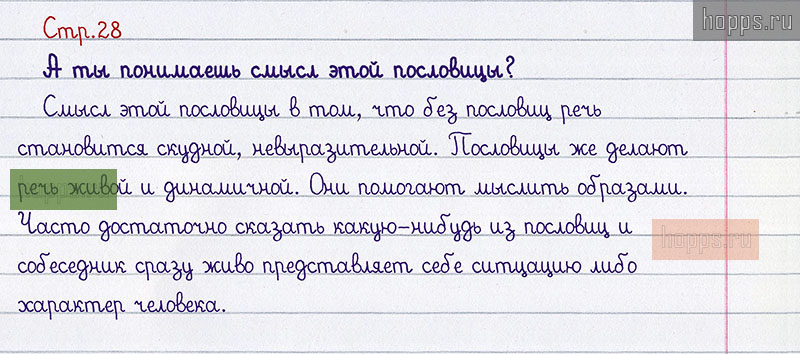 hopps.ru
Стр.28
А ты понимаешь смысл этой пословицы?
Смысл этой пословицы в том, что без пословиц речь
становится скудной, невыразительной. Пословицы же делают
речь живой и динамичной. Они помогают мыслить образами.
Часто достаточно сказать какую-нибудь из пословиц и
hopps.ru
собеседник сразу живо представляет себе ситцацию либо
характер человека.